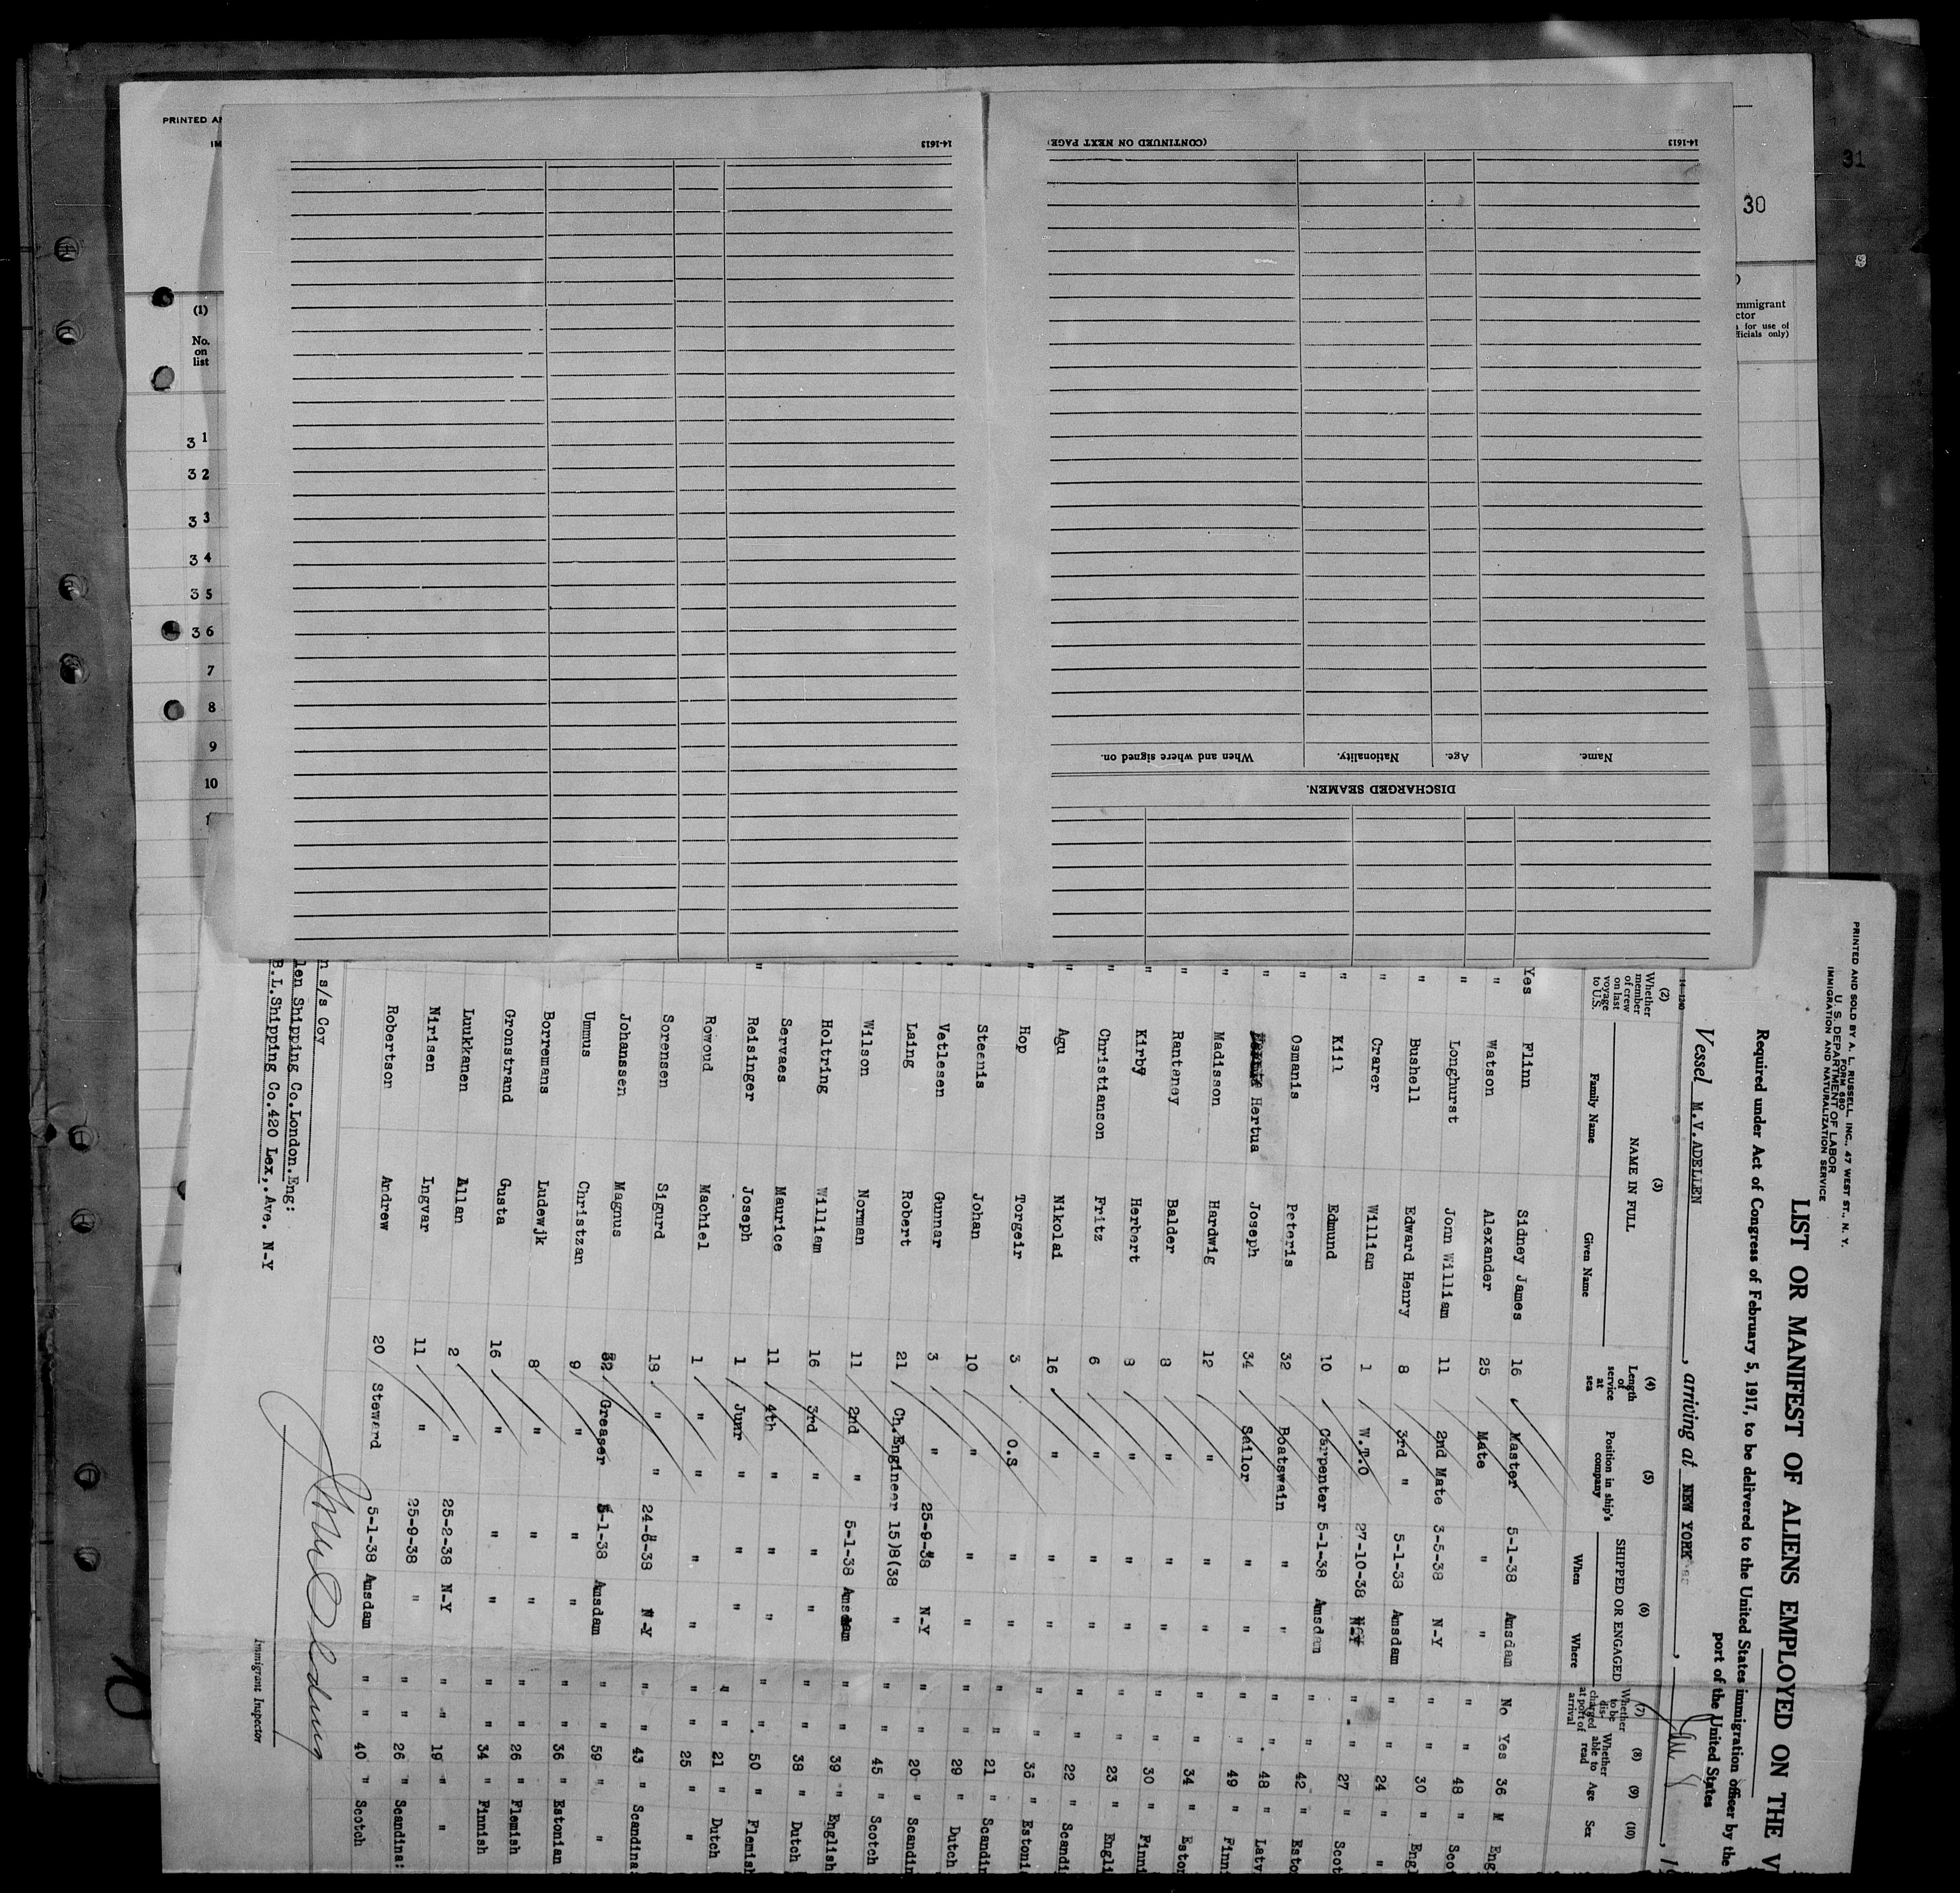 PRINTED
31
30
(1)
No.
on
list
immigrant
for use of
officials only)
31
32
33
34
35
36
7
8
9
10
14-1613
(CONTINUED ON NEXT PAGE)
14-1613
DISCHARGED SEAMEN.
Name. Age. Nationality. When and where signed on.
PRINTED AND SOLD BY A. L. RUSSELL, INC., 47 WEST ST., N. Y.
FORM 680
U. S. DEPARTMENT OF LABOR
IMMIGRATION AND NATURALIZATION SERVICE
LIST OR MANIFEST OF ALIENS EMPLOYED ON THE
Required under Act of Congress of February 5, 1917, to be delivered to the United States immigration officer by the
port of the United States
Vessel M.V.ADELLEN, arriving at NEW YORK
(2) (3) (4) (5) (6) (7) (8) (9) (10)
Whether member of crew on last voyage to U.S. NAME IN FULL Family Name Given Name Length of service at sea Position in ship's company SHIPPED OR ENGAGED When Where Whether to be discharged at port of arrival Whether able to read Age Sex
Yes Flinn Sidney James 16 Master 5-1-38 Amsdam No Yes 36 M Eng
" Watson Alexander 25 Mate " " " " 48 " Scot
" Longhurst John William 11 2nd Mate 3-5-38 N-Y " " 30 " Engl
" Bushell Edward Henry 8 3rd " 5-1-38 Amsdam " " 24 " "
" Crarer William 1 W.T.O 27-10-38 N-Y " " 27 " Scot
" Kill Edmund 10 Carpenter 5-1-38 Amsdam " " 42 " Esto
" Osmanis Peteris 32 Boatswain " " " " 48 " Latv
" Hertua Joseph 34 Sailor " " " " 49 " Finni
" Madisson Hardwig 12 " " " " " 34 " Eston
" Ranteney Balder 8 " " " " " 30 " Finni
" Kirby Herbert 8 " " " " " 23 " Engli
" Christianson Fritz 6 " " " " " 22 " Scandi
" Agu Nikolai 16 " " " " " 36 " Estoni
" Hop Torgeir 3 O.S " " " " 21 " Scandin
" Steenis Johan 10 " " " " " 29 " Dutch
" Vetlesen Gunnar 3 " 25-9-38 N-Y " " 20 " Scandin
" Laing Robert 21 Ch.Engineer 15)8(38 " " " 45 " Scotch
" Wilson Norman 11 2nd " 5-1-38 Amsdam " " 39 " English
" Holtring William 16 3rd " " " " " 38 " Dutch
" Servaes Maurice 11 4th " " " " " 50 " Flemish
" Reisinger Joseph 1 Junr " " " " " 21 " Dutch
Rowoud Machiel 1 " " " " " " 25 " "
Sorensen Sigurd 18 " " 24-6-38 N-Y " " 43 " Scandina:
Johanssen Magnus 32 Greaser 5-1-38 Amsdam " " 59 " "
Ummus Christzan 9 " " " " " 36 " Estonian
Borremans Ludewjk 8 " " " " " 26 " Flemish
Gronstrand Gusta 16 " " " " " 34 " Finnish
Luukkanen Allan 2 " 25-2-38 N-Y " " 19 " "
Nirisen Ingvar 11 " 25-9-38 " " " 26 " Scandina:
Robertson Andrew 20 Steward 5-1-38 Amsdam " " 40 " Scotch
s/s Coy
len Shipping Co.London.Eng:
B.L.Shipping Co.420 Lex,.Ave. N-Y
Immigrant Inspector